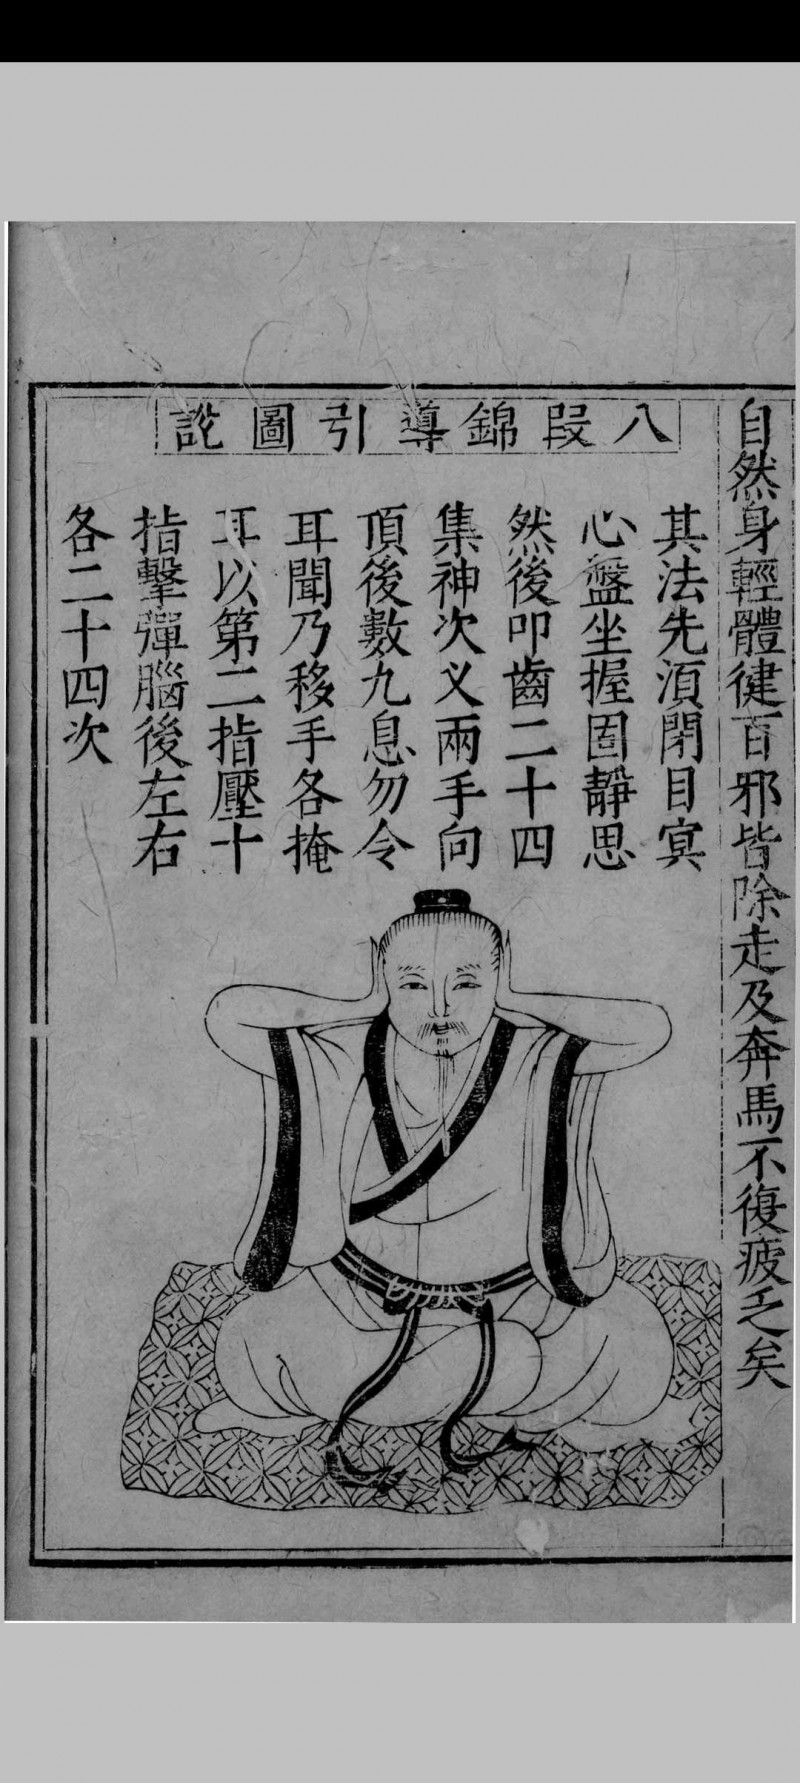 自然身輕體健百邪皆除走及奔馬不復疲乏矣
八段錦導引圖說
其法先須閉目冥
心盤坐握固靜思
然後叩齒二十四
集神次义兩手向
頂後數九息勿令
耳聞乃移手各掩
耳以第二指壓十
指擊彈腦後左右
各二十四次